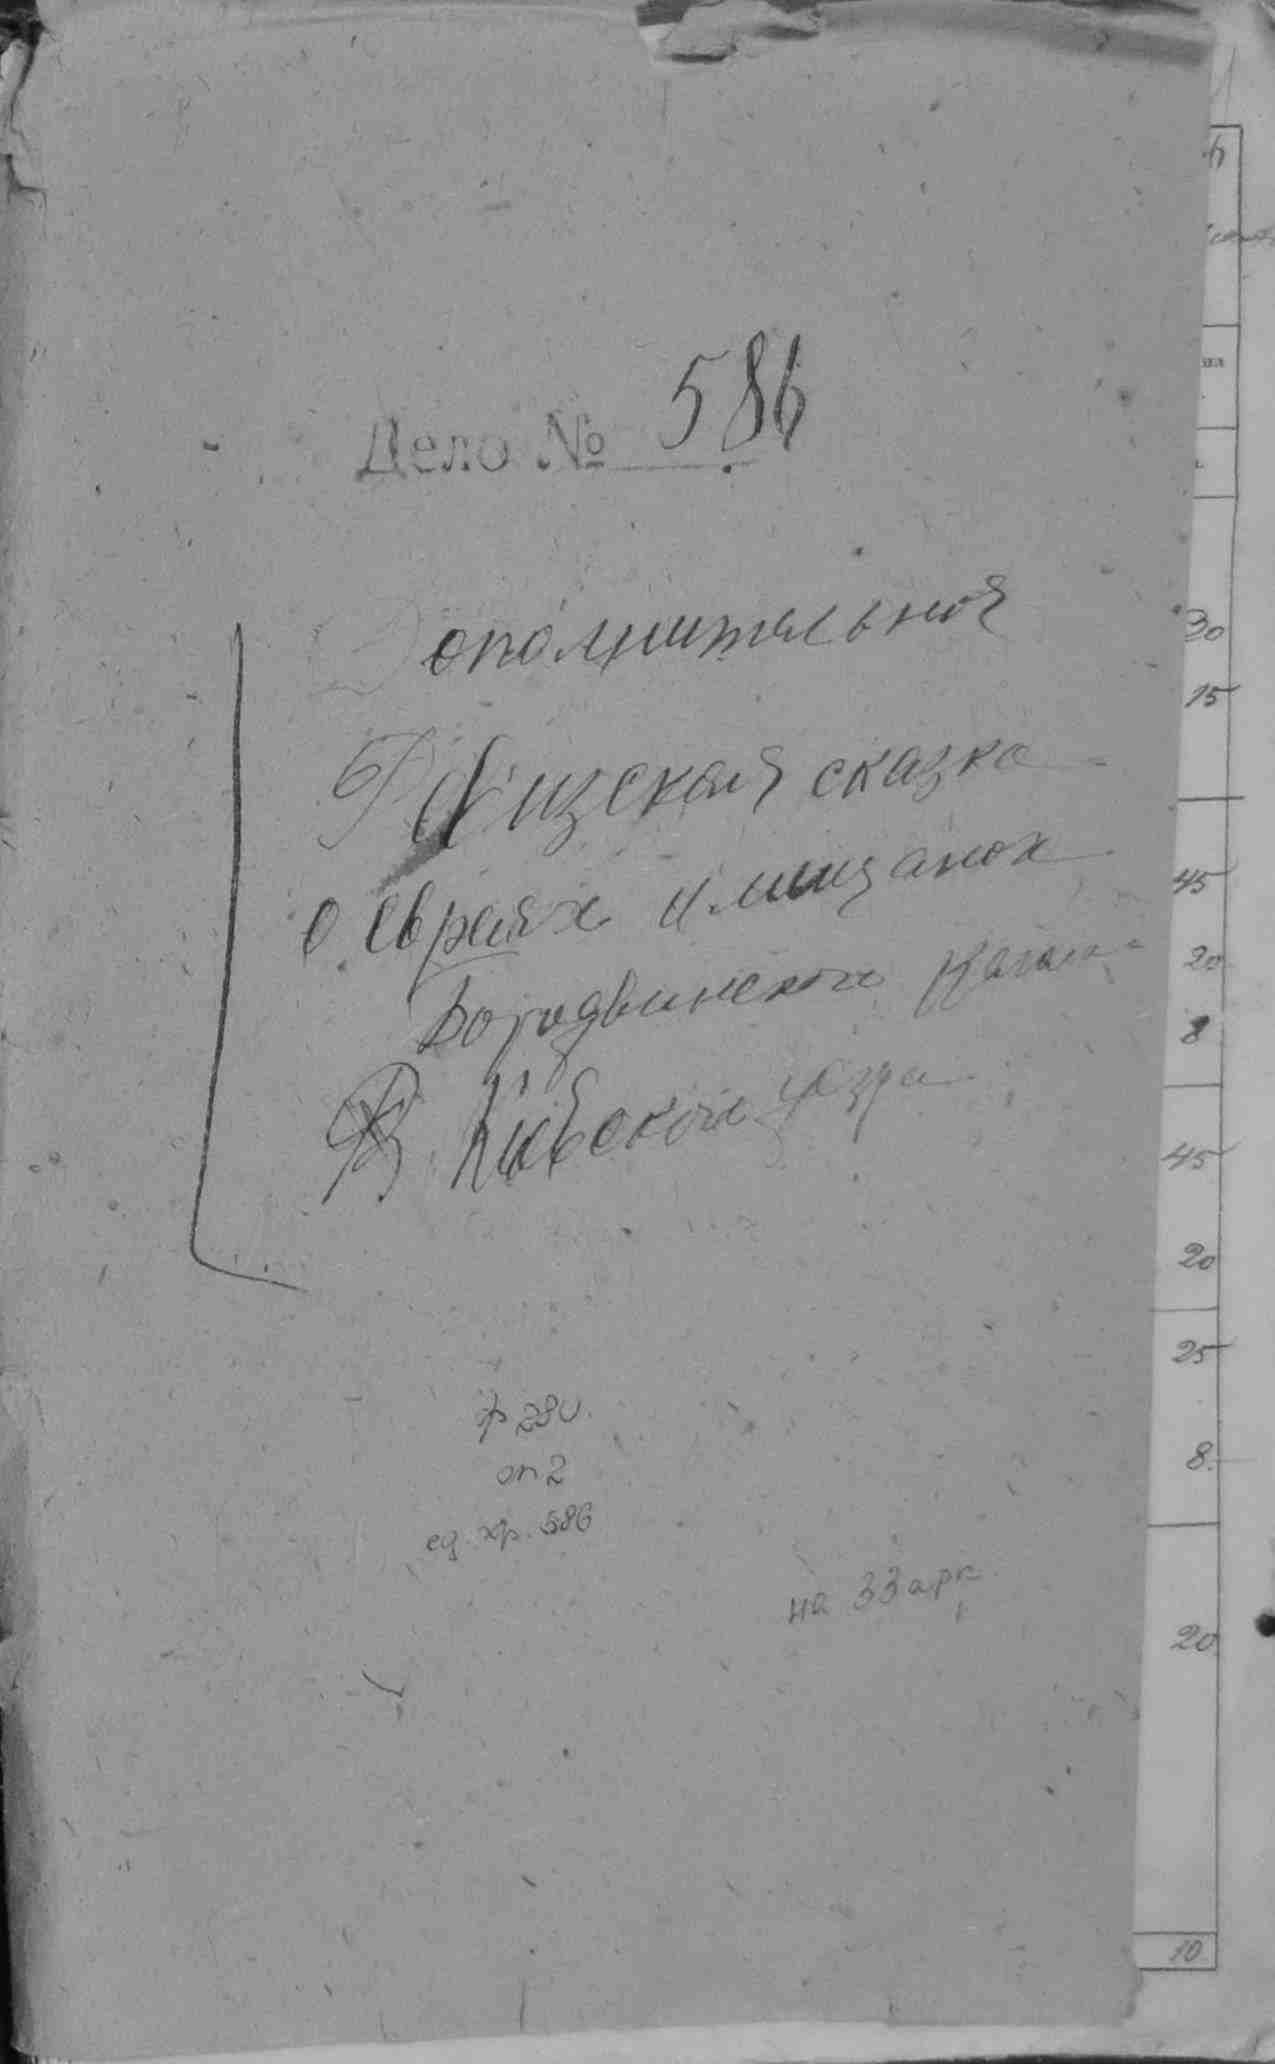 Дело № 586
Дополнительная
Ревизская сказка
о евреях и мещанох
Бородянского Кагала
Киевского уезда
ф 280.
оп 2
ед. хр. 586
на 33 арк
30
15
45
20
8
45
20
25
8
20
10